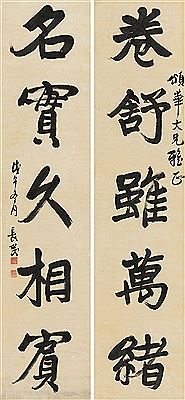 卷舒雖萬緒
頌華大兄雅正
名實久相賓
戊午五月 長英